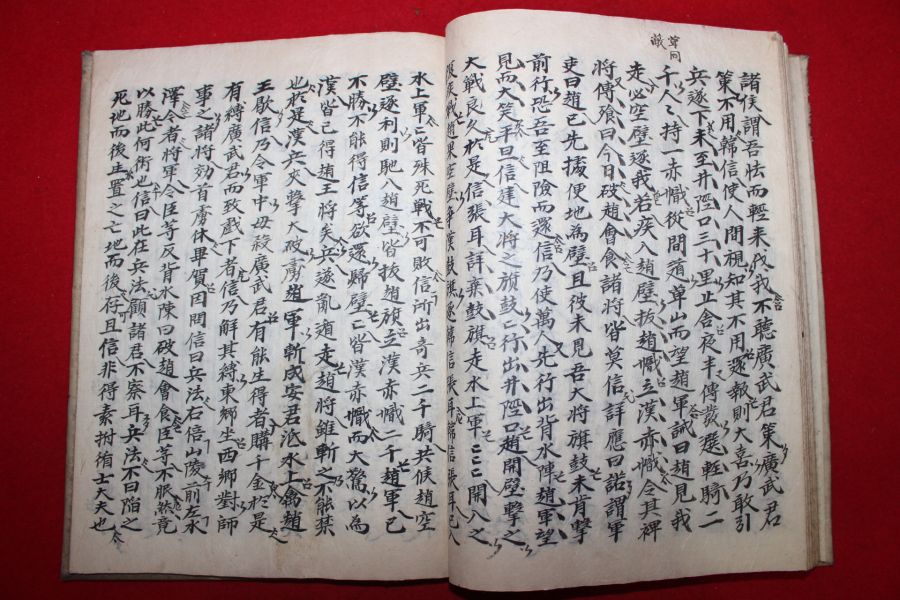 葺同
蔽
諸侯謂吾怯而輕來伐我不聽廣武君策廣武君
策不用韓信使人間視知其不用還報則大喜乃敢引
兵遂下未至井陘口三十里止舍夜半傳發選輕騎二
千人人持一赤幟從間道萆山而望趙軍誡曰趙見我
走必空壁逐我若疾入趙壁拔趙幟立漢赤幟令其裨
將傳飱曰今日破趙會食諸將皆莫信詳應曰諾謂軍
吏曰趙已先據便地為壁且彼未見吾大將旗鼓未肯擊
前行恐吾至阻險而還信乃使萬人先行出背水陣趙軍望
見而大笑平旦信建大將之旗鼓鼓行出井陘口趙開壁擊之
大戰良久於是信張耳詳棄鼓旗走水上軍水上軍開入之
復疾戰趙果空壁爭漢鼓旗逐韓信張耳韓信張耳已入
水上軍軍皆殊死戰不可敗信所出奇兵二千騎共候趙空
壁逐利則馳入趙壁皆拔趙旗立漢赤幟二千趙軍已
不勝不能得信等欲還歸壁壁皆漢赤幟而大驚以為
漢皆已得趙王將矣兵遂亂遁走趙將雖斬之不能禁
也於是漢兵夾擊大破虜趙軍斬成安君泜水上禽趙
王歇信乃令軍中毋殺廣武君有能生得者購千金於是
有縛廣武君而致戲下者信乃解其縛東鄉坐西鄉對師
事之諸將効首虜休畢賀因問信曰兵法右倍山陵前左水
澤今者將軍令臣等反背水陳曰破趙會食臣等不服然竟
以勝此何術也信曰此在兵法顧諸君不察耳兵法不曰陷之
死地而後生置之亡地而後存且信非得素拊循士大夫也